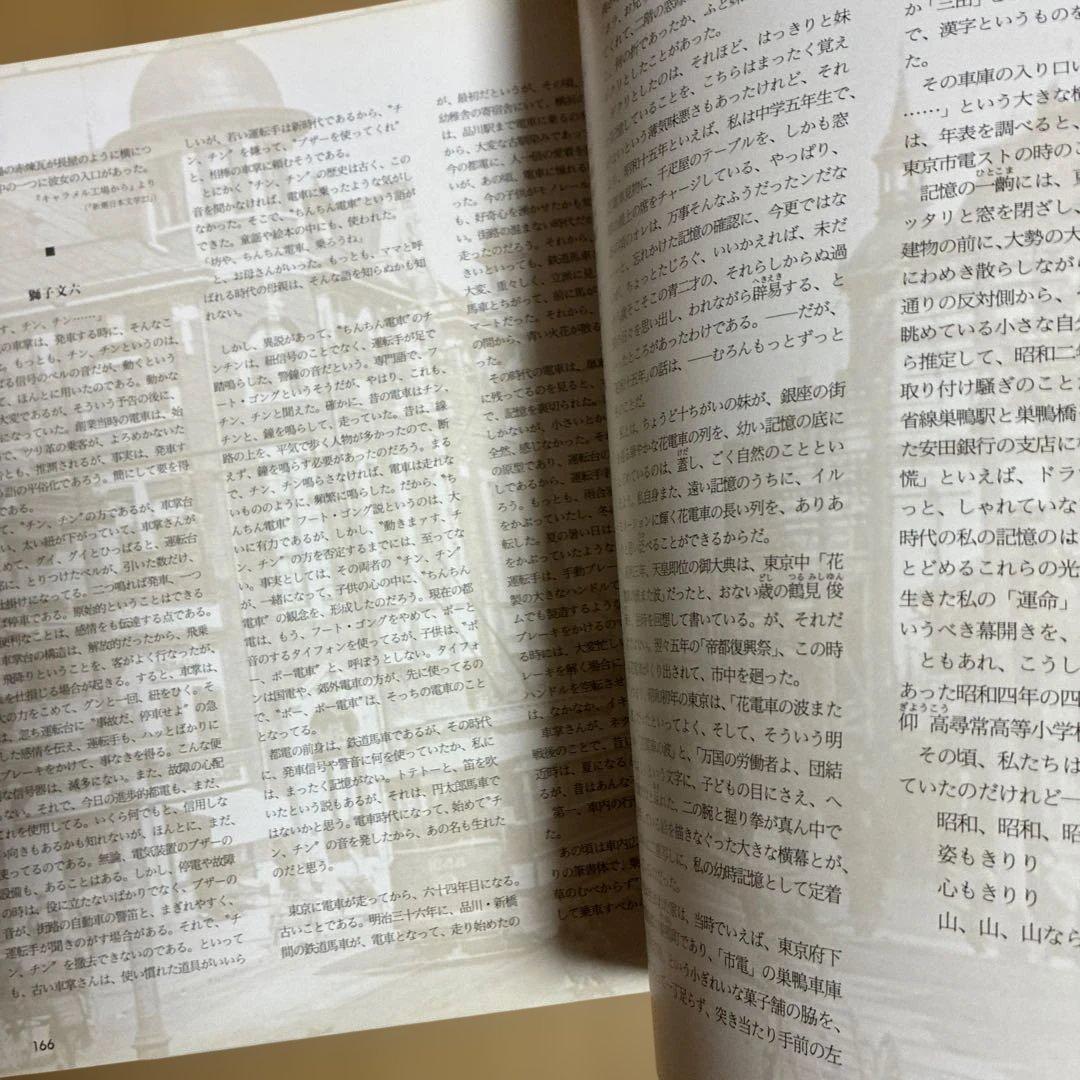 の赤煉瓦が長屋のように横につ
中の一つに彼女の入口があった。
『キャラメル工場から』より
（『新潮日本文学22』）
■
獅子文六
す、チン、チン……」
の車掌は、発車する時に、そんなこ
。もっとも、チン、チンというのは、
る信号のベルの音だが、動くという
て、ほんとに用いたのである。動かな
大変であるが、そういう予告の後に、
になっていた。創業当時の電車は、始
で、ツリ革の乗客が、よろめかないた
とも、推測されるが、事実は、発車す
る語の平俗化であろう。簡にして要を得
である。
て、〝チン、チン〟の方であるが、車掌台
い、太い紐が下がっていて、車掌さんが
めて、グイ、グイとひっぱると、運転台
に、とりつけたベルが、引いた数だけ、
仕掛けになってる。一つ鳴れば発車、一つ
ば停車である。原始的ということはできる
便利なことは、感情をも伝達する点である。
車掌台の構造は、解放的だったから、飛乗
飛降りということを、客がよく行なったが、
を仕損じる場合が起きる。すると、車掌は、
大の力をこめて、グンと一回、紐をひく。そ
は、忽ち運転台に〝事故だ、停車せよ〟の急
した感情を伝え、運転手も、ハッとばかりに
ブレーキをかけて、事なきを得る。こんな便
な信号器は、滅多にない。また、故障の心配
い。それで、今日の進歩的都電も、まだ、
これを使用してる。いくら何でもと、信用しな
い向きもあるかも知れないが、ほんとに、まだ、
使ってるのである。無論、電気装置のブザーの
設備も、あることはある。しかし、停電や故障
の時は、役に立たないばかりでなく、ブザーの
音が、街路の自動車の警笛と、まぎれやすく、
運転手が聞きのがす場合がある。それで、〝チ
ン、チン〟を撤去できないのである。といって
も、古い車掌さんは、使い慣れた道具がいいら
しいが、若い運転手は新時代であるから、〝チ
ン、チン〟を嫌って、〝ブザーを使ってくれ〟
と、相棒の車掌に頼むそうである。
とにかく〝チン、チン〟の歴史は古く、この
音を聞かなければ、電車に乗ったような気がし
なかった。そこで、〝ちんちん電車〟という語が
できた。童謡や絵本の中にも、使われた。
「坊や、ちんちん電車、乗ろうね」
と、お母さんがいった。もっとも、ママと呼
ばれる時代の母親は、そんな語を知らぬかも知
れない。
しかし、異説があって、〝ちんちん電車〟のチ
ンチンは、紐信号のことでなく、運転手が足で
踏鳴らした、警鐘の音だという。専門語で、フ
ート・ゴングというそうだが、やはり、これも、
チン、チンと聞えた。確かに、昔の電車はチン
チンと、鐘を鳴らして、走っていた。昔は、線
路の上を、平気で歩く人物が多かったので、断
えず、鐘を鳴らす必要があったのだろう。まる
で、チン、チン鳴らさなければ、電車は走れな
いもののように、頻繁に鳴らした。だから、〝ち
んちん電車〟フート・ゴング説というのは、大
いに有力であるが、しかし、〝動きまァす、チン
チン〟の方を否定するまでには、至ってな
い。事実としては、その両者の〝チン、チン〟
が、一緒になって、子供の心の中に、〝ちんちん
電車〟の観念を、形成したのだろう。現在の都
電は、もう、フート・ゴングをやめて、ボーと
音のするタイフォンを使ってるが、子供は、〝ボ
ー、ボー電車〟と、呼ぼうとしない。タイフォ
ンは国電や、郊外電車の方が、先に使ってるの
で、〝ボー、ボー電車〟は、そっちの電車のこと
となってる。
都電の前身は、鉄道馬車であるが、その時代
に、発車信号や警音に何を使っていたか、私に
は、まったく記憶がない。トテトーと、笛を吹
いたという説もあるが、それは、円太郎馬車で
はないかと思う。電車時代になって、始めて〝チ
ン、チン〟の音を発したから、あの名も生れた
のだと思う。
東京に電車が走ってから、六十四年目になる。
古いことである。明治三十六年に、品川・新橋
間の鉄道馬車が、電車となって、走り始めたの
が、最初だというが、その頃、
幼稚舎の寄宿舎にいて、横浜の
は、品川駅まで電車に乗るの
から、大変な古馴染みであって
今の都電に、人一倍の愛着を
いが、あの頃、電車に憧れる
った。今の子供がモノレール
も、好奇心を湧かせたかも知
い。街路の混まない時代だ
走ったのだろう。それから、
きいといっても、鉄道馬車
大変、重々しく、立派に見
馬車とちがって、前に馬が
マートだった。それから、
の間から、青い火花が散る
った。
その時代の電車は、単車
に残ってるのを見ると、
で、記憶を裏切られた。
しかないが、小さいとか
全然、感じなかった。そ
の原型であり、運転台の
してあるから、運転手
ろう。もっとも、雨合
をかぶっていたし、冬
転した。夏の暑い日は
かかっていたような
運転手は、手動ブレー
製の大きなハンドルで
ムでも製造するような
ブレーキをかけるので
る時には、大変忙し
ーキを解く場合に
ハンドルを空転させ
は、なかなか、イキ
車掌さんが、ネク
戦後のことで、昔
近時は、夏になる
が、昔はあんな
第一、車内の行
た。
あの頃は車内
りの筆書体で、
草のむべからず
して乗車すべか
166
てくれて、二階の窓際
何の折であったか、ふと妹
リとしたことがあった。
リとしたのは、それほど、はっきりと妹
憶していることを、こちらはまったく覚え
ないという薄気味悪さもあったけれど、それ
昭和十五年といえば、私は中学五年生で、
見物に、千疋屋のテーブルを、しかも窓
上の席をチャージしている、やっぱり、
のオレは、万事そんなふうだったンだな
、忘れかけた記憶の確認に、今更ではな
ちょっとたじろぐ、いいかえれば、未だ
歳そこそこの青二才の、それらしからぬ過
さを思い出し、われながら辟易する、と
へきえき
たところがあったわけである。――だが、
和十五年」の話は、――むろんもっとずっと
ことだ。
私とは、ちょうど十ちがいの妹が、銀座の街
やかな花電車の列を、幼い記憶の底に
れているのは、蓋し、ごく自然のことといい
けだ
、私自身また、遠い記憶のうちに、イル
ーションに輝く花電車の長い列を、ありあ
と思い泛べることができるからだ。
三年、天皇即位の御大典は、東京中「花
また波」だったと、おない歳の鶴見俊
どし　つるみしゅん
を回想して書いている。が、それだ
。翌々五年の「帝都復興祭」、この時
くり出されて、市中を廻った。
昭和初年の東京は、「花電車の波また
ったといってよく、そして、そういう明
車の波」と、「万国の労働者よ、団結
」という文字に、子どもの目にさえ、へ
、二の腕と握り拳が真ん中で
いる絵を描きなぐった大きな横幕とが、
しに、私の幼時記憶として定着
った。
家は、当時でいえば、東京府下
町であり、「市電」の巣鴨車庫
という小ぎれいな菓子舗の脇を、
一丁足らず、突き当たり手前の左
か「三田」と
で、漢字というものを
た。
その車庫の入り口い
……」という大きな横
は、年表を調べると、
東京市電ストの時のこ
記憶の一齣には、東
ひとこま
ッタリと窓を閉ざし、
建物の前に、大勢の大
にわめき散らしながら
通りの反対側から、そ
眺めている小さな自分
ら推定して、昭和二年
取り付け騒ぎのことだ
省線巣鴨駅と巣鴨橋
た安田銀行の支店に
慌」といえば、ドラ
っと、しゃれていな
時代の私の記憶のは
とどめるこれらの光
生きた私の「運命」
いうべき幕開きを、
ともあれ、こうし
あった昭和四年の四
仰高尋常高等小学校
ぎょうこう
その頃、私たちは
ていたのだけれど―
昭和、昭和、昭
姿もきりり
心もきりり
山、山、山なら